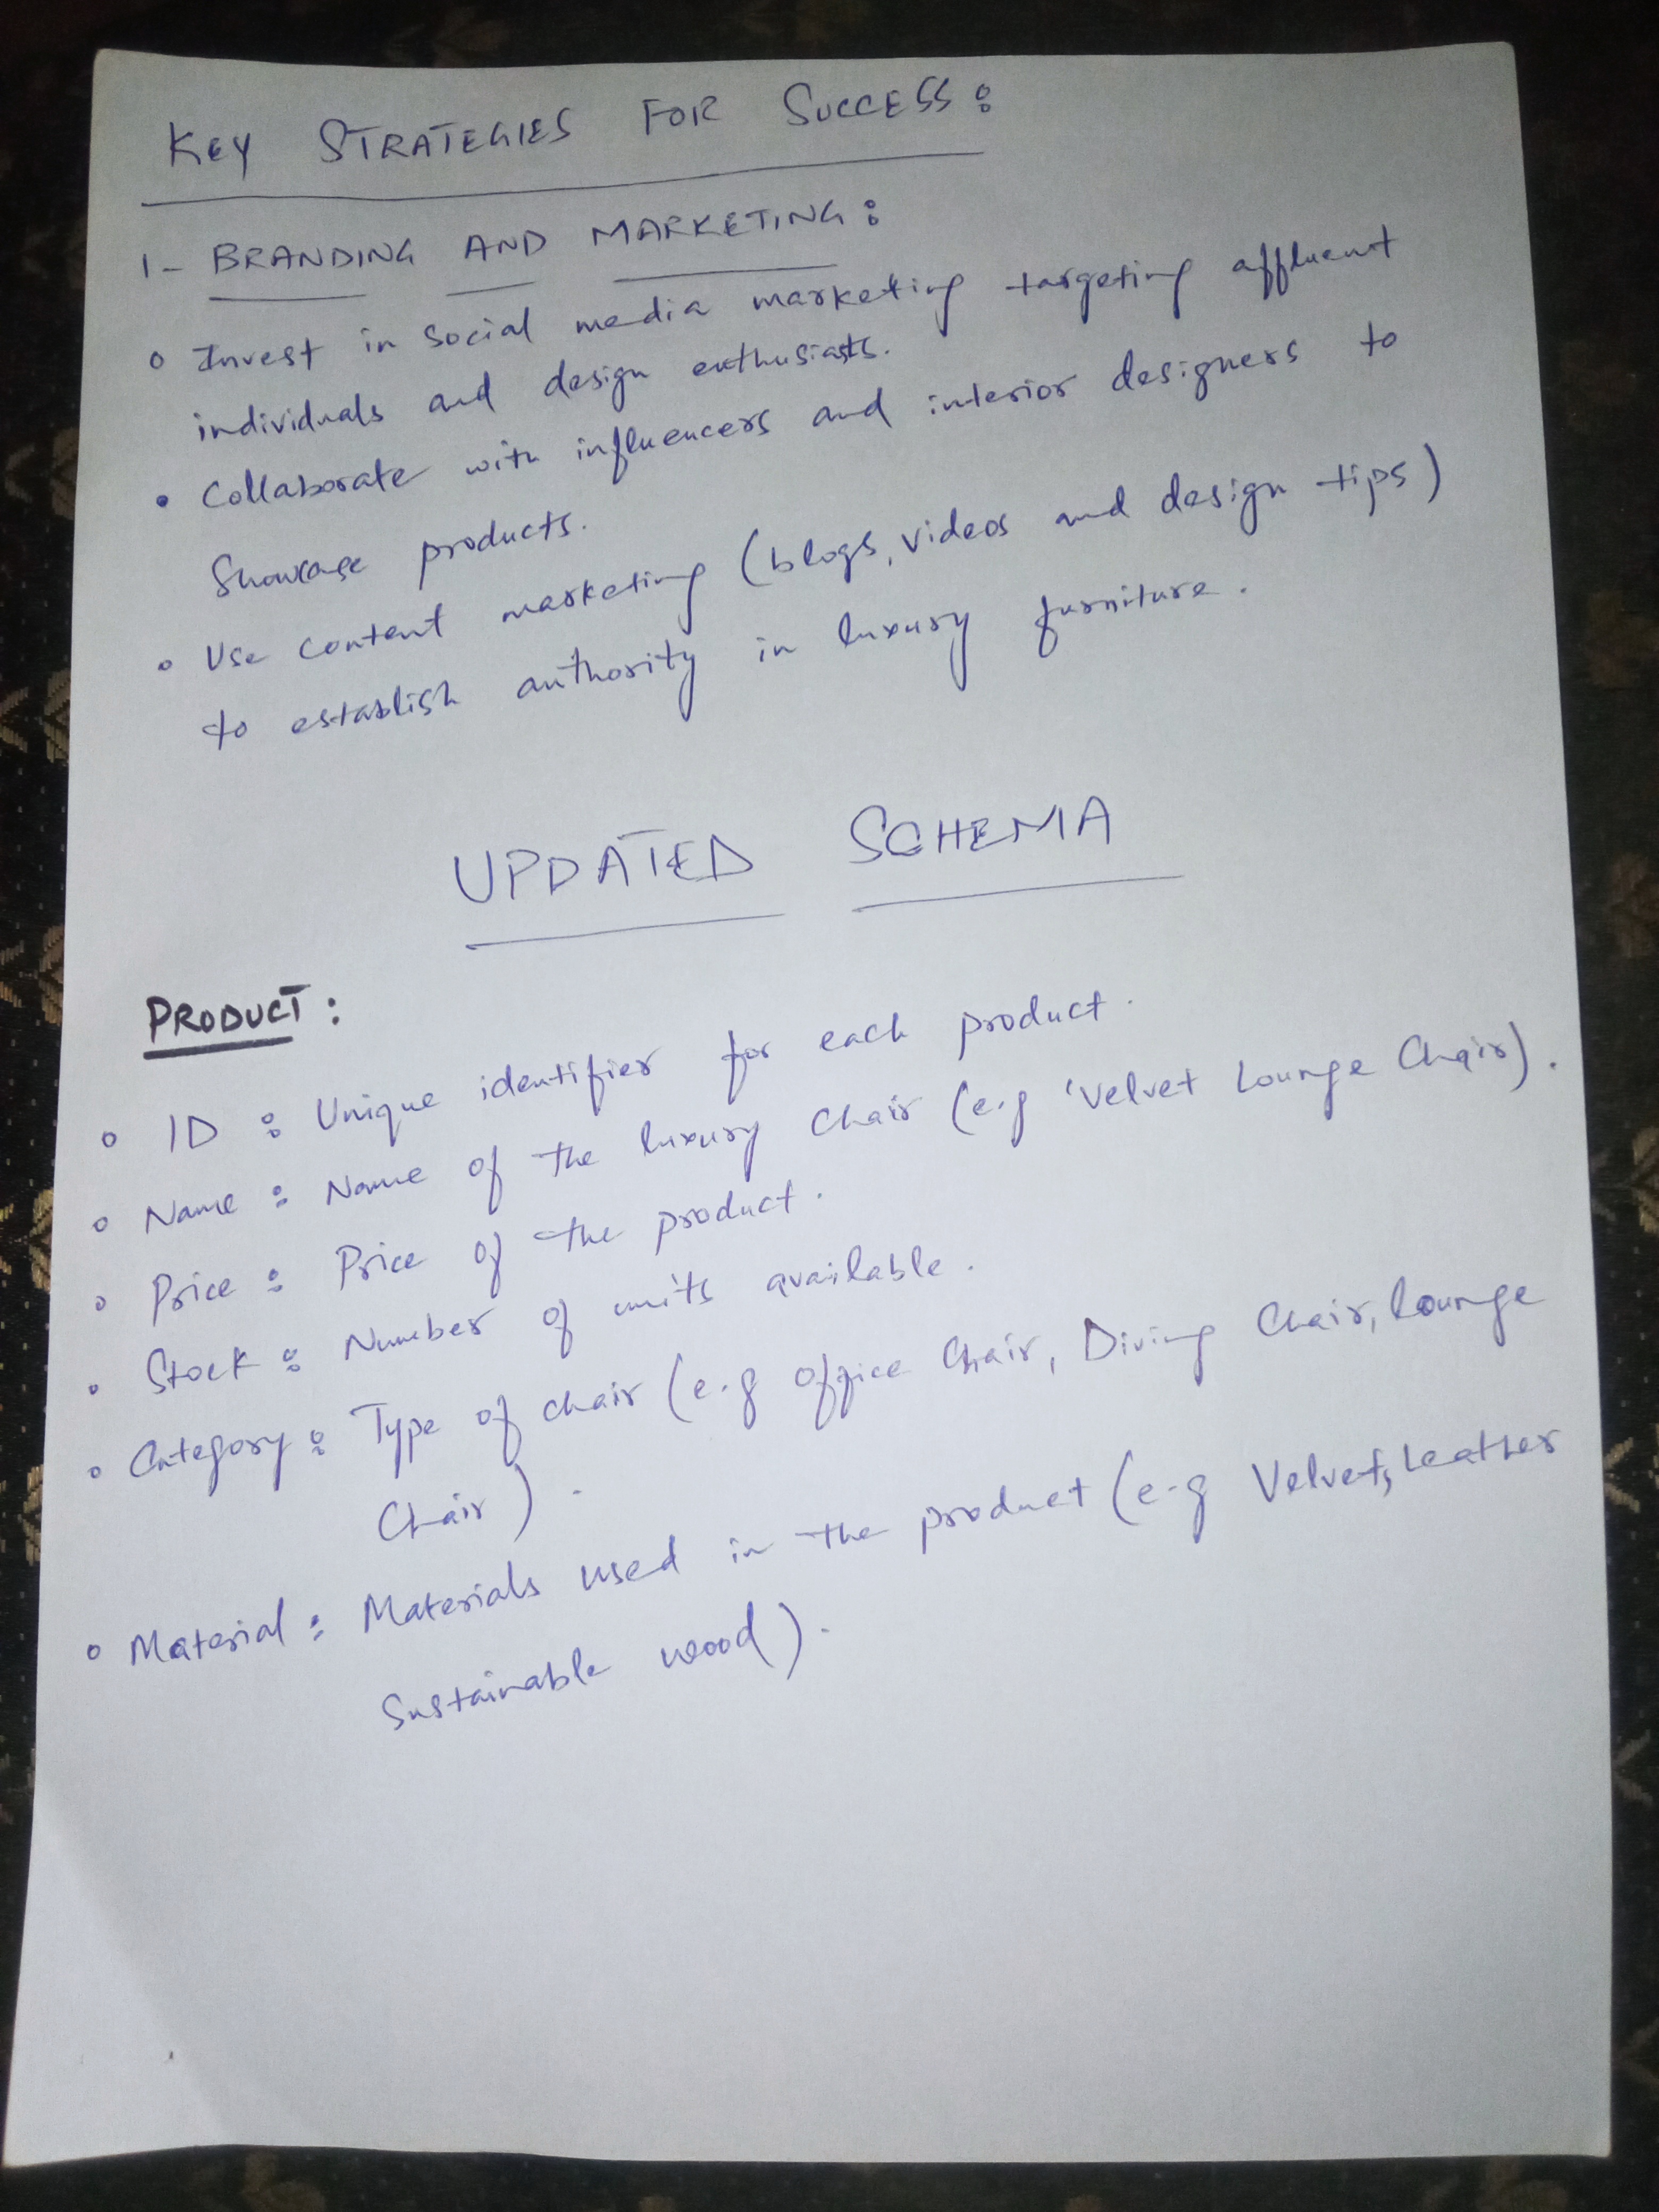 KEY STRATEGIES FOR SUCCESS:
1- BRANDING AND MARKETING:
• Invest in Social media marketing targeting affluent
individuals and design enthusiasts.
• Collaborate with influencers and interior designers to
Showcase products.
• Use content marketing (blogs, videos and design tips)
to establish authority in luxury furniture.
UPDATED SCHEMA
PRODUCT:
• ID: Unique identifier for each product.
• Name: Name of the luxury chair (e.g 'Velvet Lounge Chair).
• Price: Price of the product.
• Stock: Number of units available.
• Category: Type of chair (e.g Office Chair, Dining Chair, lounge
Chair).
• Material: Materials used in the product (e-g Velvet, Leather
Sustainable wood).